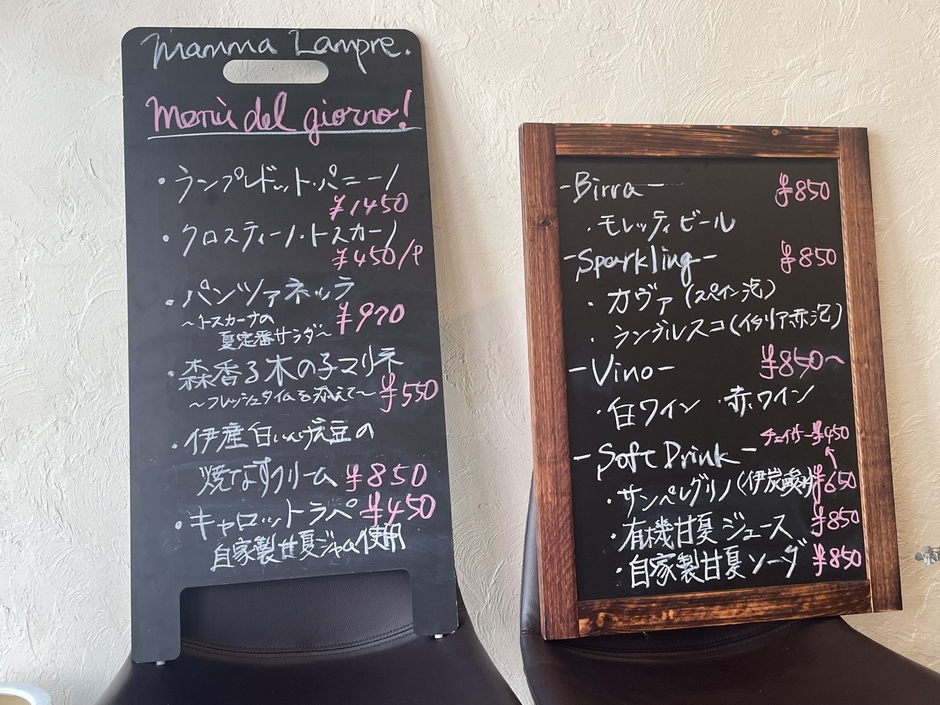 Mamma Lampre.
Menù del giorno!
・ランプレドット・パニーノ
¥1450
・クロスティーノ・トスカーノ
¥450/P
・パンツァネッラ
¥970
～トスカーナの
夏定番サラダ～
・森香る木の子マリネ
～フレッシュタイムを添えて～ ¥550
・伊産白いんげん豆の
焼なすクリーム ¥850
・キャロットラペ ¥450
自家製甘夏ジャム使用
-Birra- ¥850
・モレッティビール
-Sparkling- ¥850
・カヴァ(スペイン泡)
・ランブルスコ(イタリア赤泡)
-Vino- ¥850～
・白ワイン ・赤ワイン
チェイサー ¥450
-Soft Drink-
・サンペレグリノ(伊炭酸水) ¥650
・有機甘夏ジュース ¥850
・自家製甘夏ソーダ ¥850